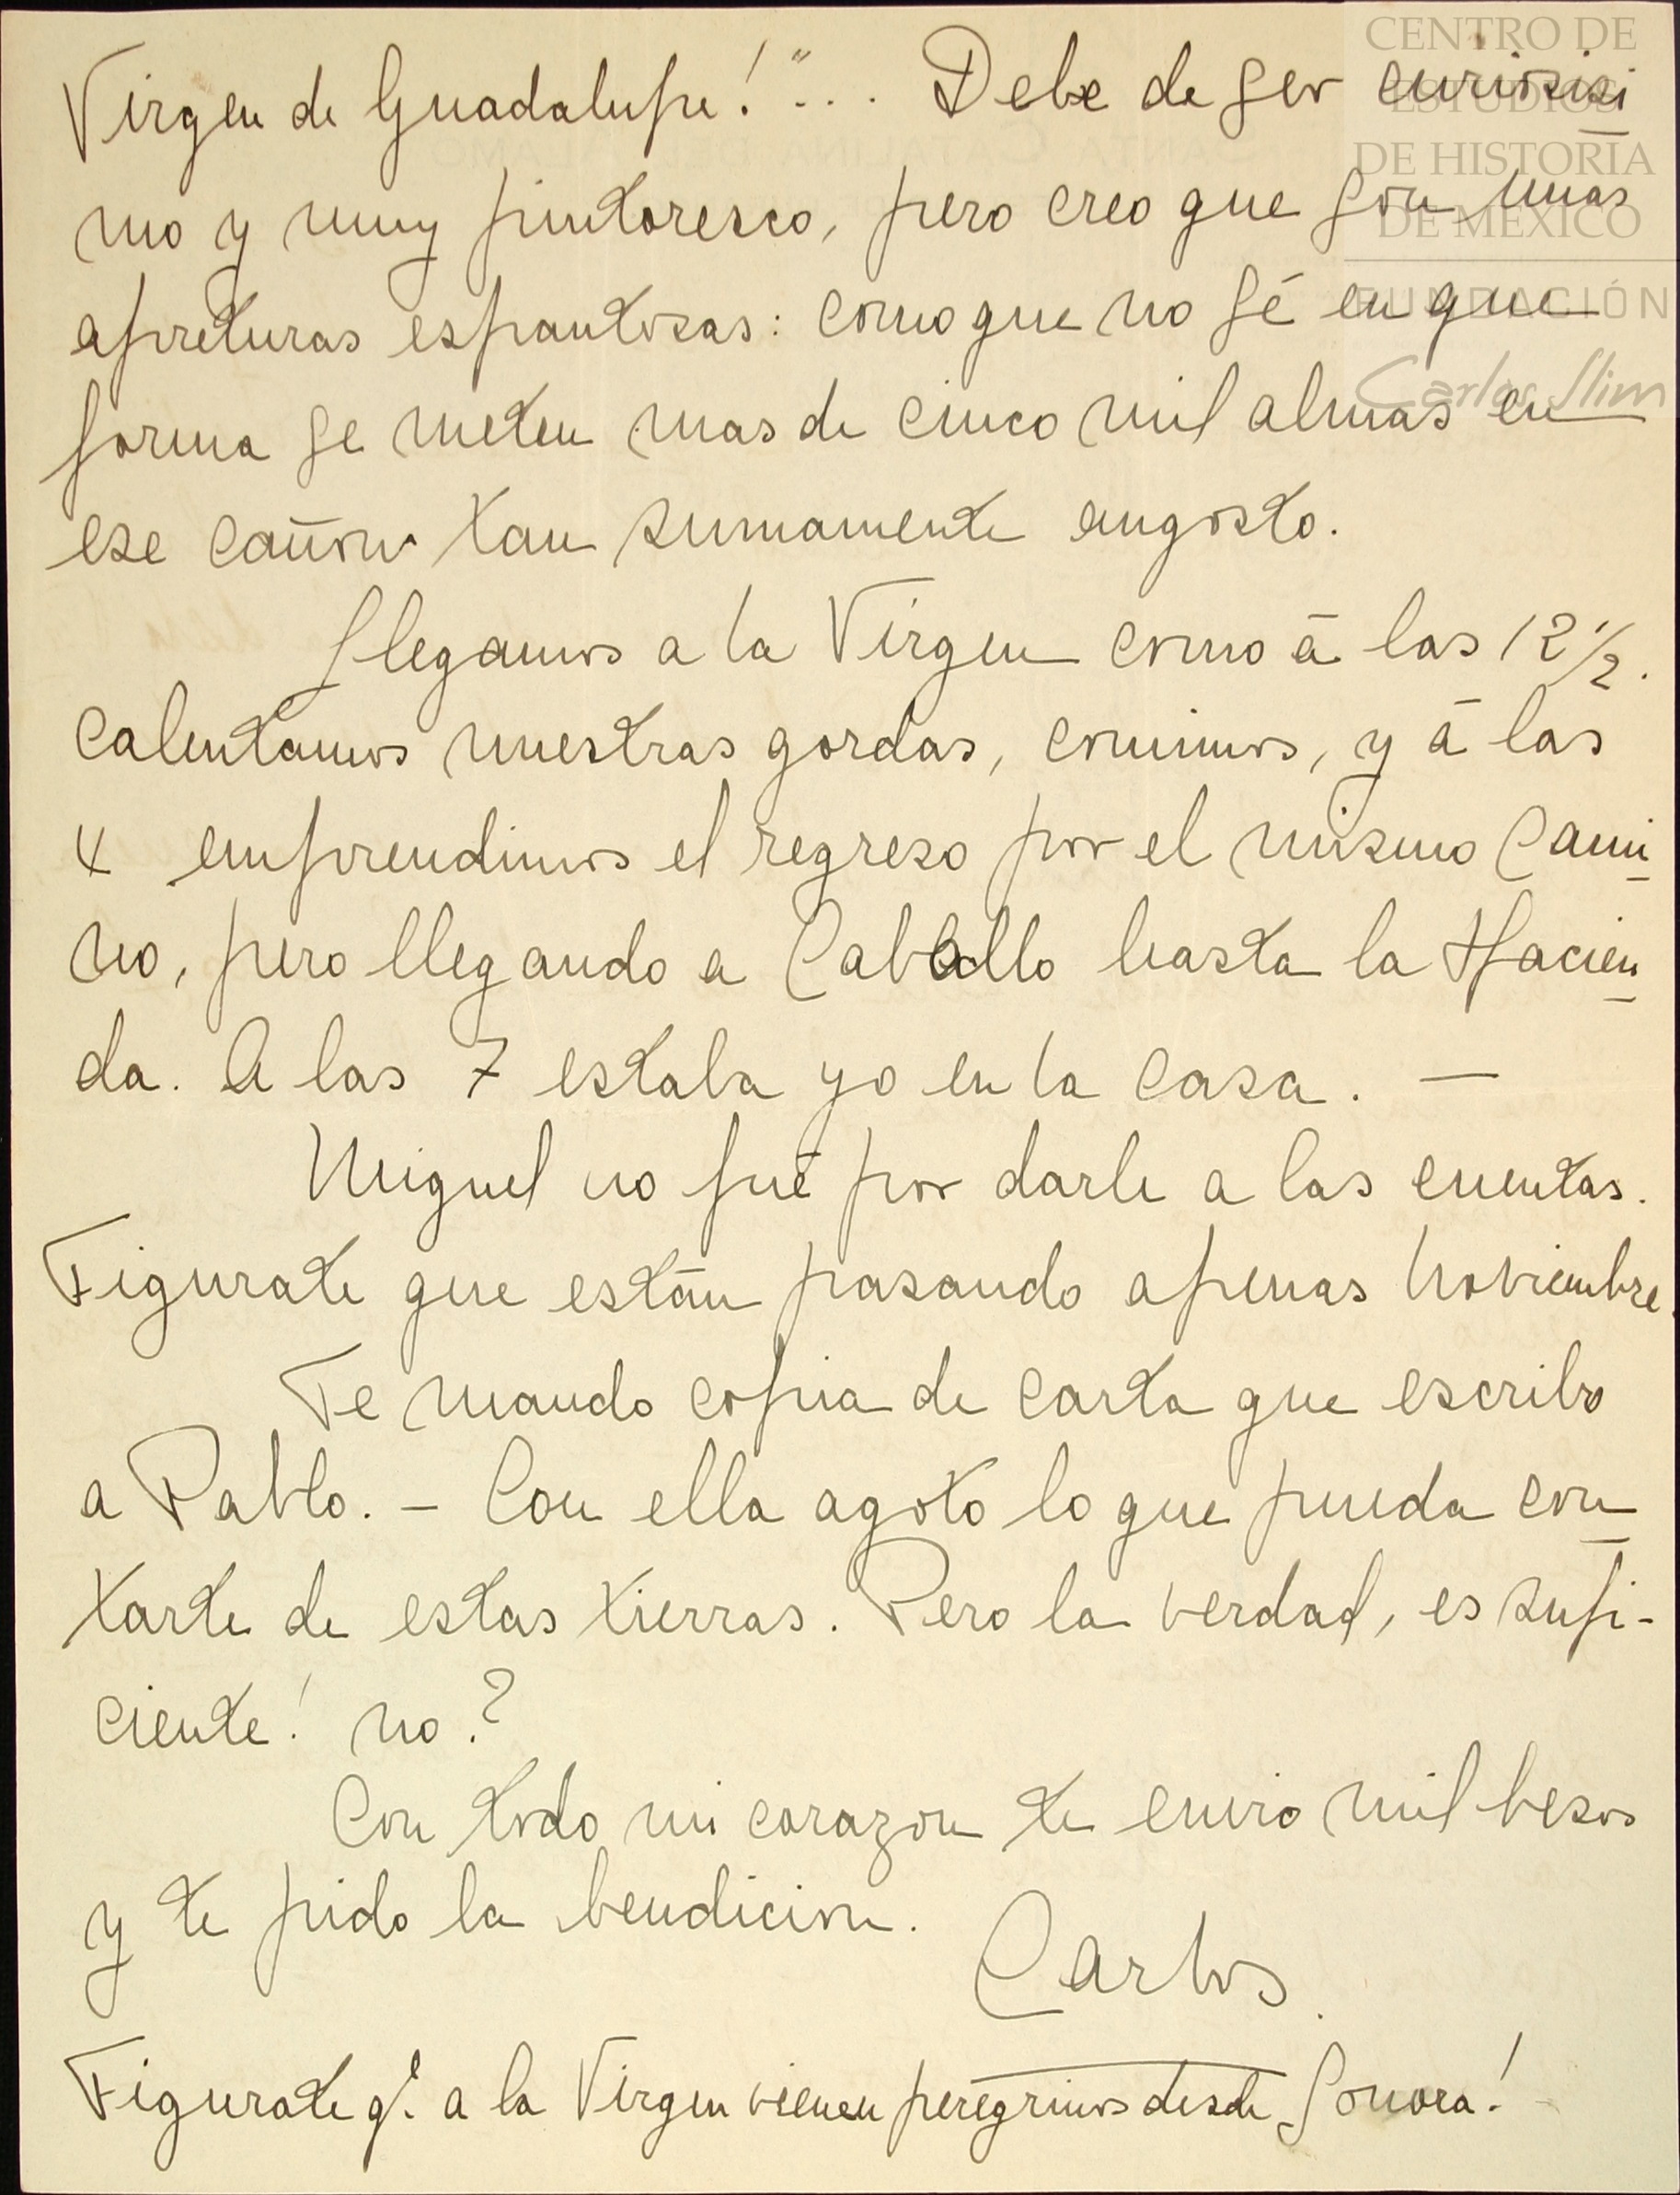 CENTRO DE
ESTUDIOS
DE HISTORIA
DE MEXICO
FUNDACIÓN
Carlos Slim
Virgen de Guadalupe!"... Debe de ser curiosisi
mo y muy pintoresco, pero creo que son unas
apreturas espantosas: como que no sé en que
forma se meten mas de cinco mil almas en
ese cañon tan sumamente angosto.
Llegamos a la Virgen como á las 12 1/2.
Calentamos nuestras gordas, comimos, y á las
4 emprendimos el regreso por el mismo Cami
no, pero llegando a Caballo hasta la Hacien
da. A las 7 estaba yo en la casa. —
Miguel no fué por darle a las cuentas.
Figurate que están pasando apenas Noviembre.
Te mando copia de carta que escribo
a Pablo. — Con ella agoto lo que pueda con
tarte de estas tierras. Pero la verdad, es sufi-
ciente! no?
Con todo mi corazon te envio mil besos
y te pido la bendicion.
Carlos.
Figurate qe. a la Virgen vienen peregrinos desde Sonora! -